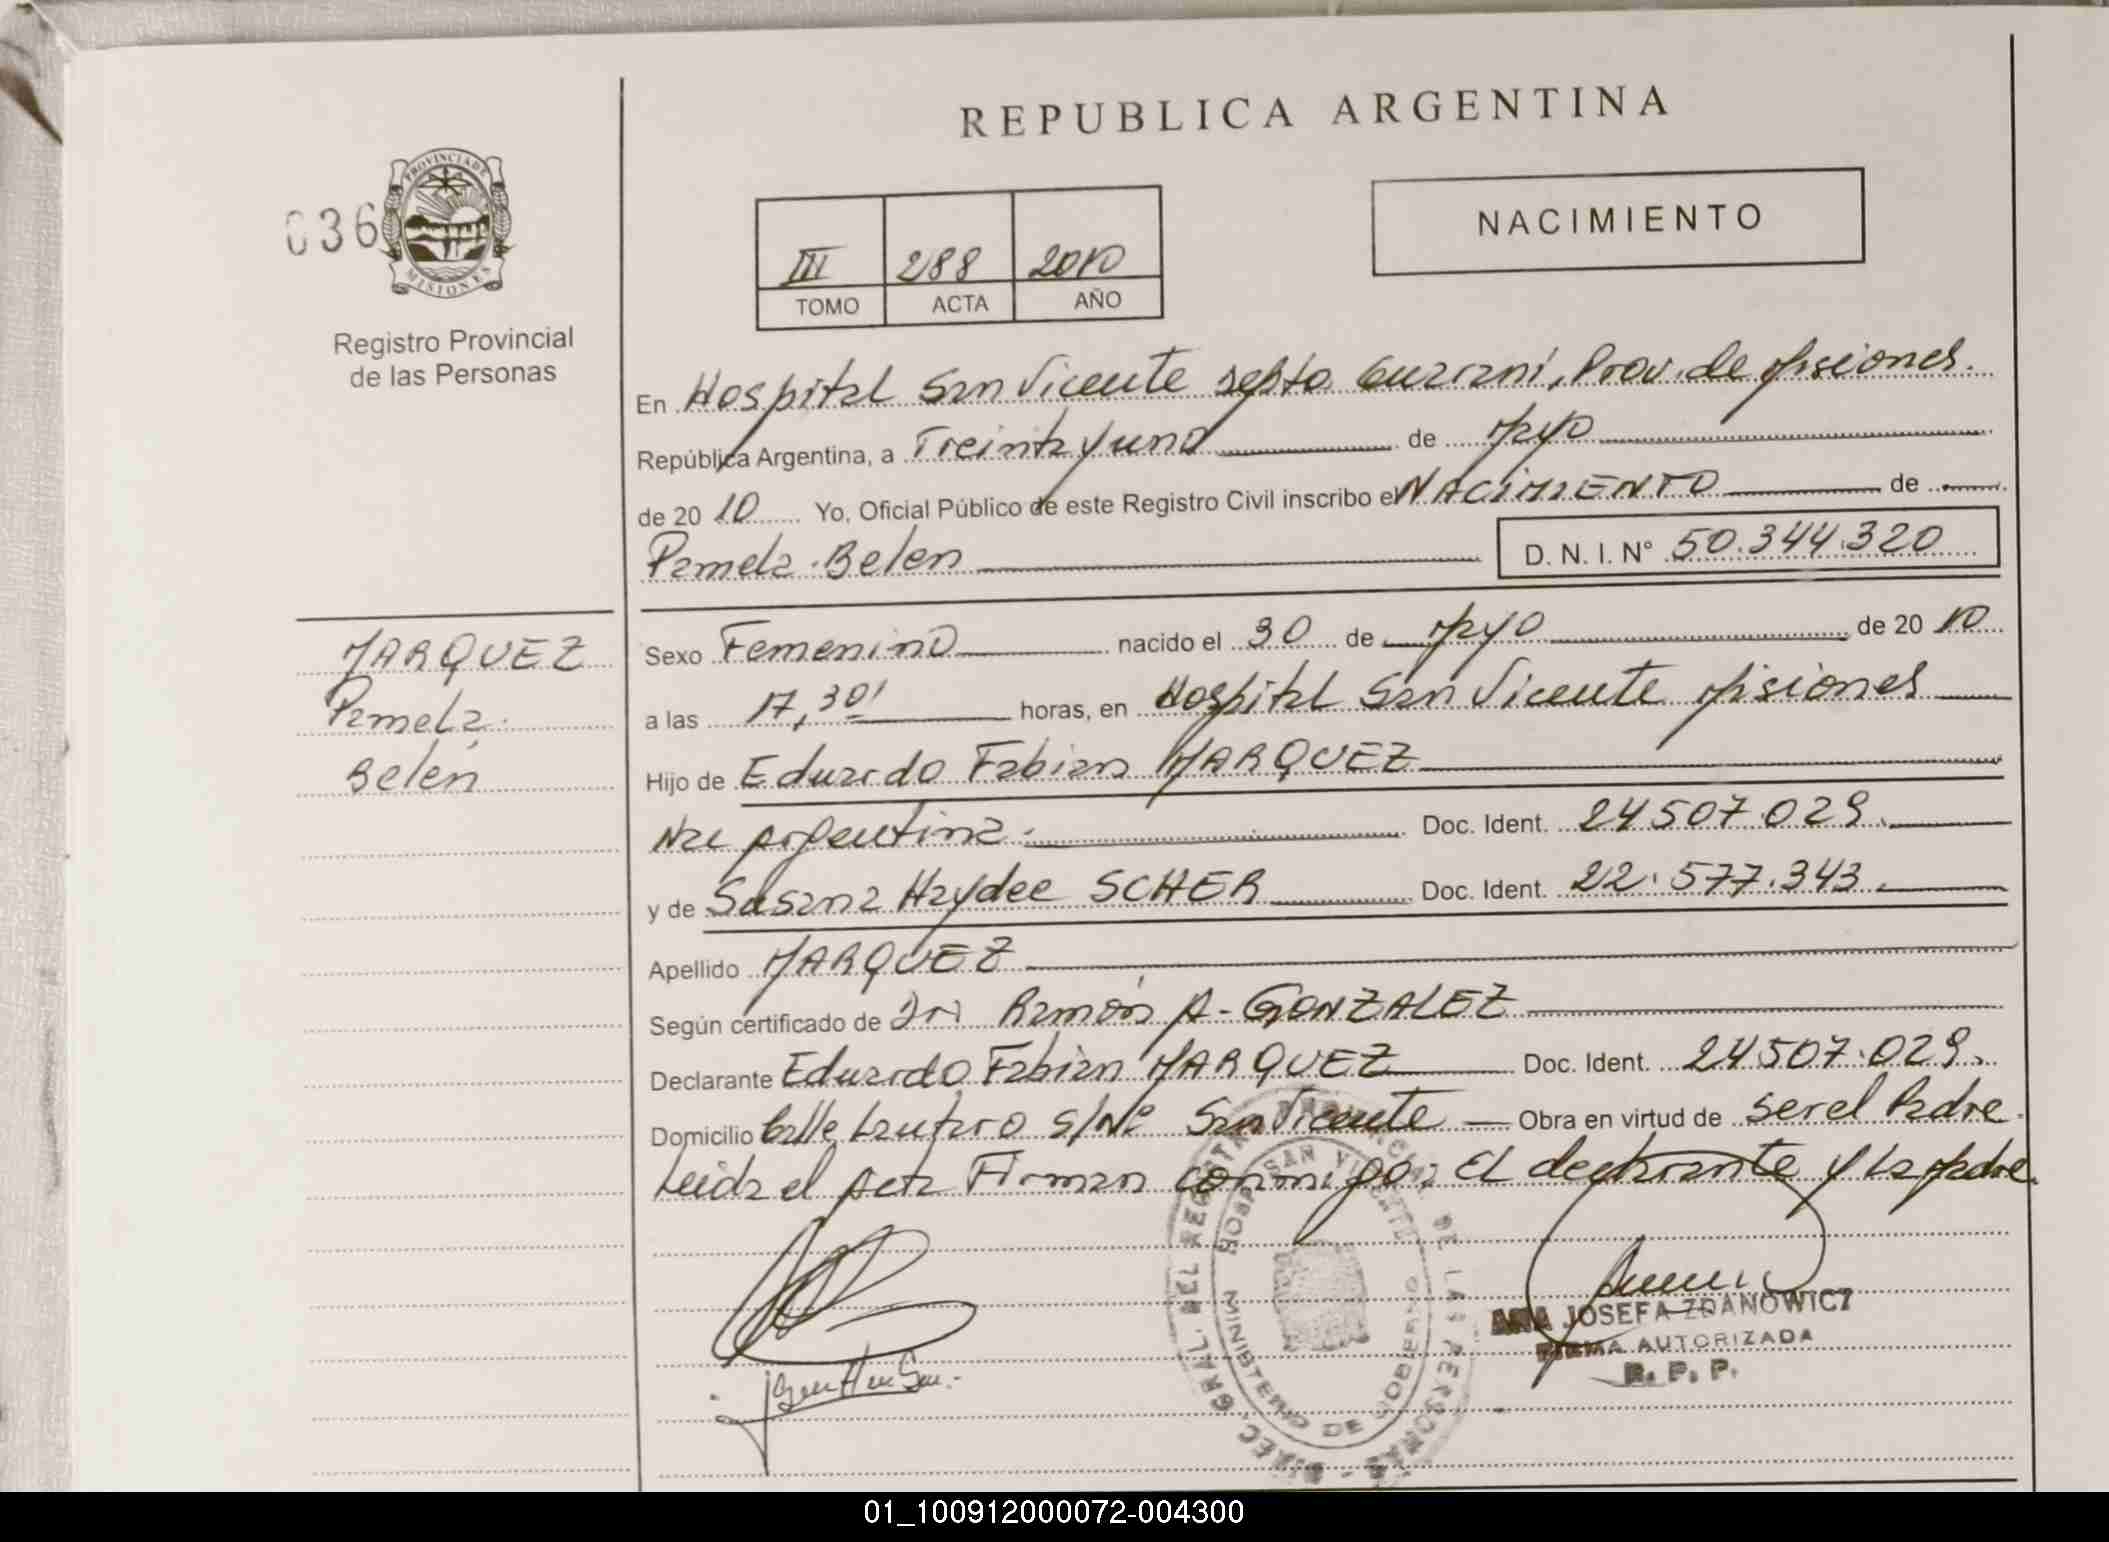 REPUBLICA ARGENTINA
036
PROVINCIA DE
MISIONES
Registro Provincial
de las Personas
III 288 2010
TOMO ACTA AÑO
NACIMIENTO
En Hospital San Vicente Depto Guarani, Prov. de Misiones.
República Argentina, a Treinta y uno de Mayo
de 2010 Yo, Oficial Público de este Registro Civil inscribo el NACIMIENTO de
Pamela Belen D. N. I. N° 50.344.320
MARQUEZ
Pamela
Belen
Sexo Femenino nacido el 30 de Mayo de 2010
a las 17,30' horas, en Hospital San Vicente Misiones
Hijo de Eduardo Fabian MARQUEZ
Nac Argentina. Doc. Ident. 24507.029.
y de Susana Haydee SCHER Doc. Ident. 22.577.343.
Apellido MARQUEZ
Según certificado de Dr. Ramón A. GONZALEZ
Declarante Eduardo Fabian MARQUEZ Doc. Ident. 24507.029.
Domicilio Calle Lautaro S/N° San Vicente Obra en virtud de ser el Padre.
Leida el Acta Firman conmigo: El declarante y La Madre.
DIREC. GRAL. DEL REGISTRO PROVINCIAL DE LAS PERSONAS
HOSP. SAN VICENTE
MINISTERIO DE GOBIERNO
ANA JOSEFA ZDANOWICZ
FIRMA AUTORIZADA
R. P. P.
01_100912000072-004300